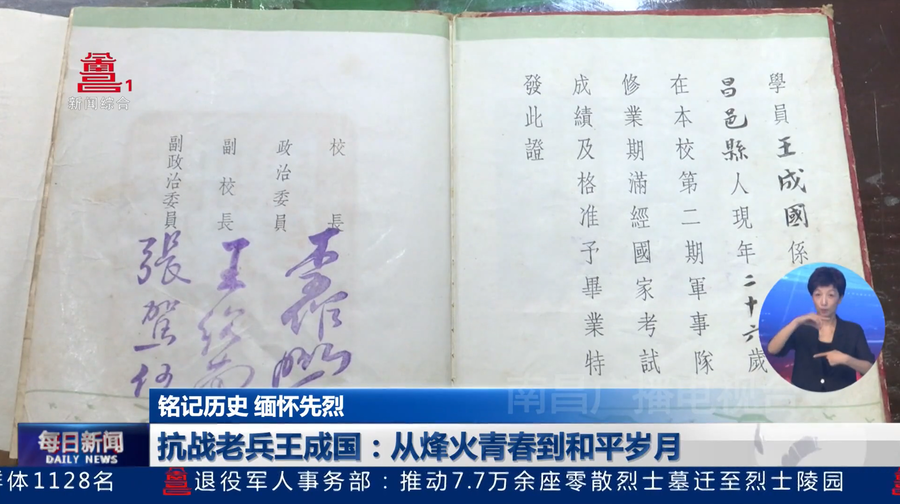 昌1
新闻综合
學員王成國係
昌邑縣人現年二十六歲
在本校第二期軍事隊
修業期滿經國家考試
成績及格准予畢業特
發此證
校長
政治委員
李作鵬
副校長
王
副政治委員
張駕伍
南昌广播电视台
铭记历史 缅怀先烈
每日新闻
DAILY NEWS
抗战老兵王成国：从烽火青春到和平岁月
群体1128名
退役军人事务部：推动7.7万余座零散烈士墓迁至烈士陵园